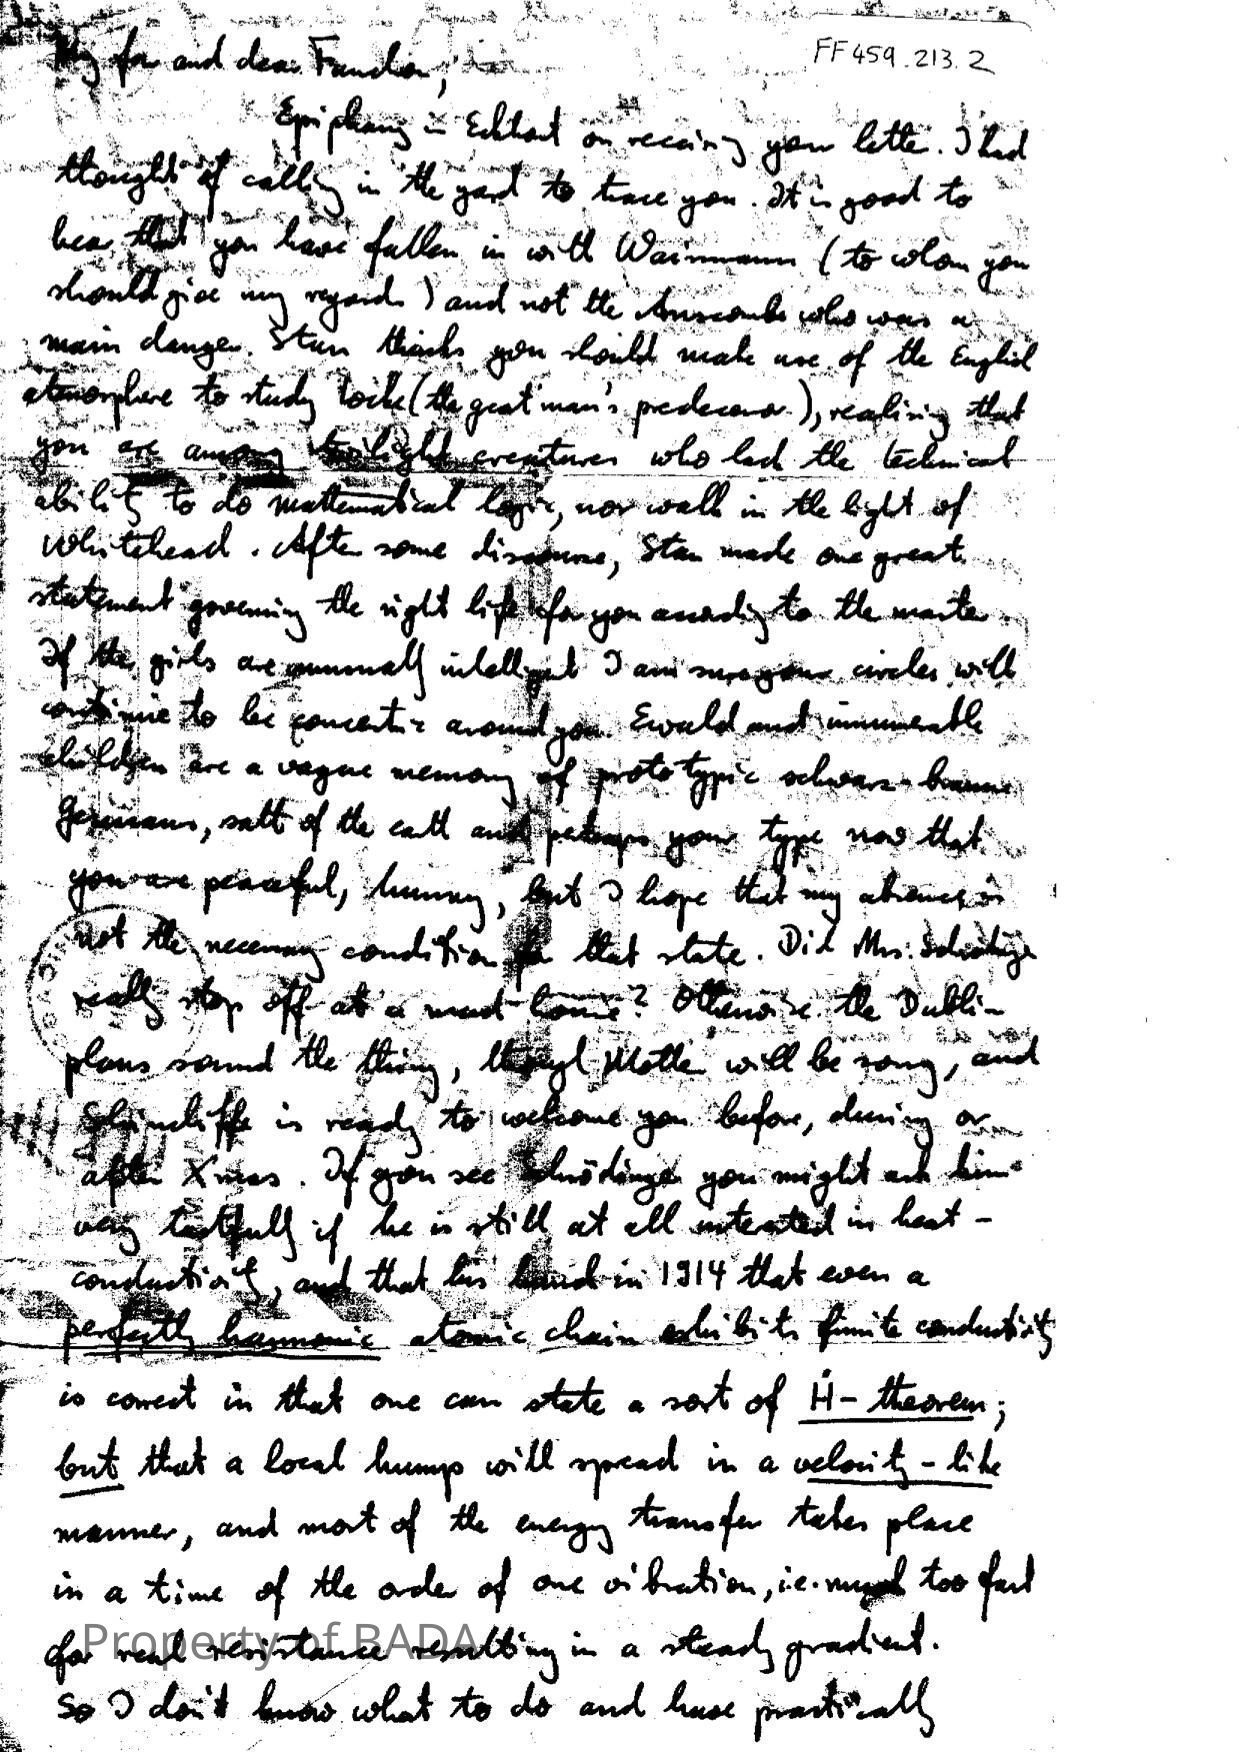 FF459.213.2
My far and dear
Epiphany in on receiving your letter. I had
thought of calling in the yard to trace you. It is good to
hear that you have fallen in with (to whom you
should give my regards) and not the Anscombe who was a
main danger. Stan thinks you should make use of the English
atmosphere to study Locke (the great man's predecessor), realising that
you are among twilight creatures who lack the technical
ability to do mathematical logic, nor walk in the light of
Whitehead. After some discourse, Stan made one great
statement governing the right life for you according to the master.
If the girls are unusually intelligent I am sure your circles will
continue to be concentric around you. Ewald and innumerable
children are a vague memory of prototypic schwarz-braune
Germans, salt of the earth and perhaps your type now that
you are peaceful, hummy, but I hope that my absence is
not the necessary condition for that state. Did Mrs. Schrödinger
really stop off at a mad-home? Otherwise the Dublin-
plans sound the thing, though will be sorry, and
is ready to welcome you before, during or
after Xmas. If you see Schrödinger you might ask him
very tactfully if he is still at all interested in heat-
conductivity, and that his in 1914 that even a
perfectly harmonic atomic chain exhibits finite conductivity
is correct in that one can state a sort of H-theorem;
but that a local hump will spread in a velocity-like
manner, and most of the energy transfer takes place
in a time of the order of one vibration, i.e. much too fast
for real resistance resulting in a steady gradient.
So I don't know what to do and have practically
Property of BADA